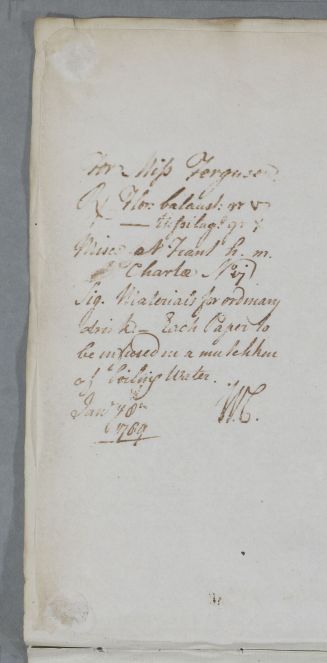 For Miss Ferguson
℞ Flor: balaust: gr v
— tussilag: gr v
Misce N Fiant h. m.
Chartæ No vj
Sig. Materials for ordinary
drink — Each Paper to
be infused in a mutchkin
of boiling Water.
Jany 8th W.C.
1789